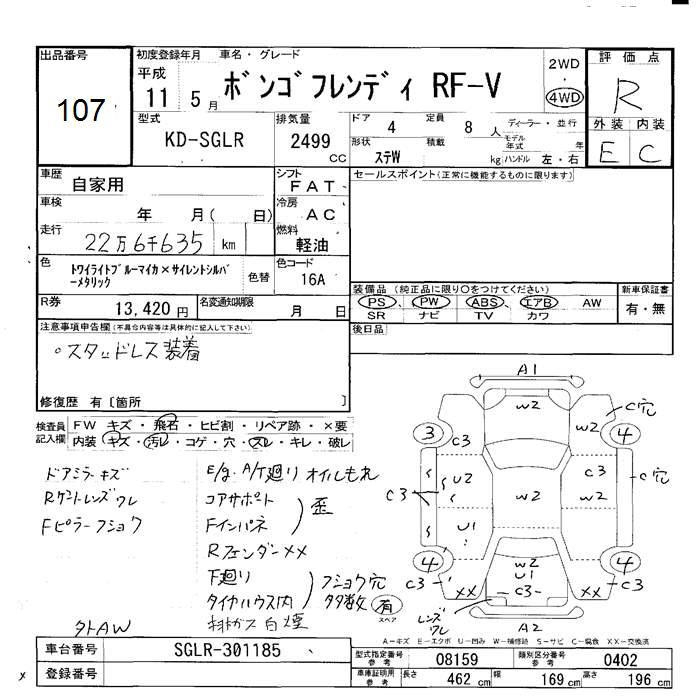 出品番号
107
初度登録年月
平成
11 5月
車名・グレード
ボンゴフレンディ RF-V
2WD
4WD
評価点
R
外装 内装
E C
型式
KD-SGLR
排気量
2499
CC
ドア
4
定員
8
人
形状
ステW
積載
kg
ディーラー・並行
モデル年式 年
ハンドル 左・右
車歴
自家用
シフト
FAT
セールスポイント(正常に機能するものに限ります)
車検
年 月( 日)
冷房
AC
走行
22万6千635 km
燃料
軽油
色
トワイライトブルーマイカ×サイレントシルバーメタリック
色替
色コード
16A
装備品 (純正品に限り○をつけてください)
PS・PW・ABS・エアB・AW
SR ナビ TV カワ
新車保証書
有・無
R券
13,420円
名変通知期限
月 日
後日品
注意事項申告欄(不具合内容等は具体的に記入して下さい)
○スタッドレス装着
修復歴 有〔箇所 〕
検査員記入欄
FW キズ・飛石・ヒビ割・リペア跡・×要
内装・キズ・汚レ・コゲ・穴・スレ・キレ・破レ
ドアミラーキズ
Rケントレンズワレ
Fピラーフショク
E/g・A/T廻りオイルもれ
コアサポート
Fインパネ
歪
RフェンダーXX
下廻り
タイヤハウス内
フショク穴
多数
排ガス白煙
外AW
有
スペア
A1
W2
W2
C穴
3
C3
4
C3
C穴
U2
W2
W2
C3
U1
4
W2
U1
4
C3
XX
C3
XX
C3
レンズワレ
A2
A-キズ E-エクボ U-凹み W-補修跡 S-サビ C-腐食 XX-交換済
車台番号
SGLR-301185
登録番号
型式指定番号
参考
08159
類別区分番号
参考
0402
車庫証明用
参考
長さ
462 cm
幅
169 cm
高さ
196 cm